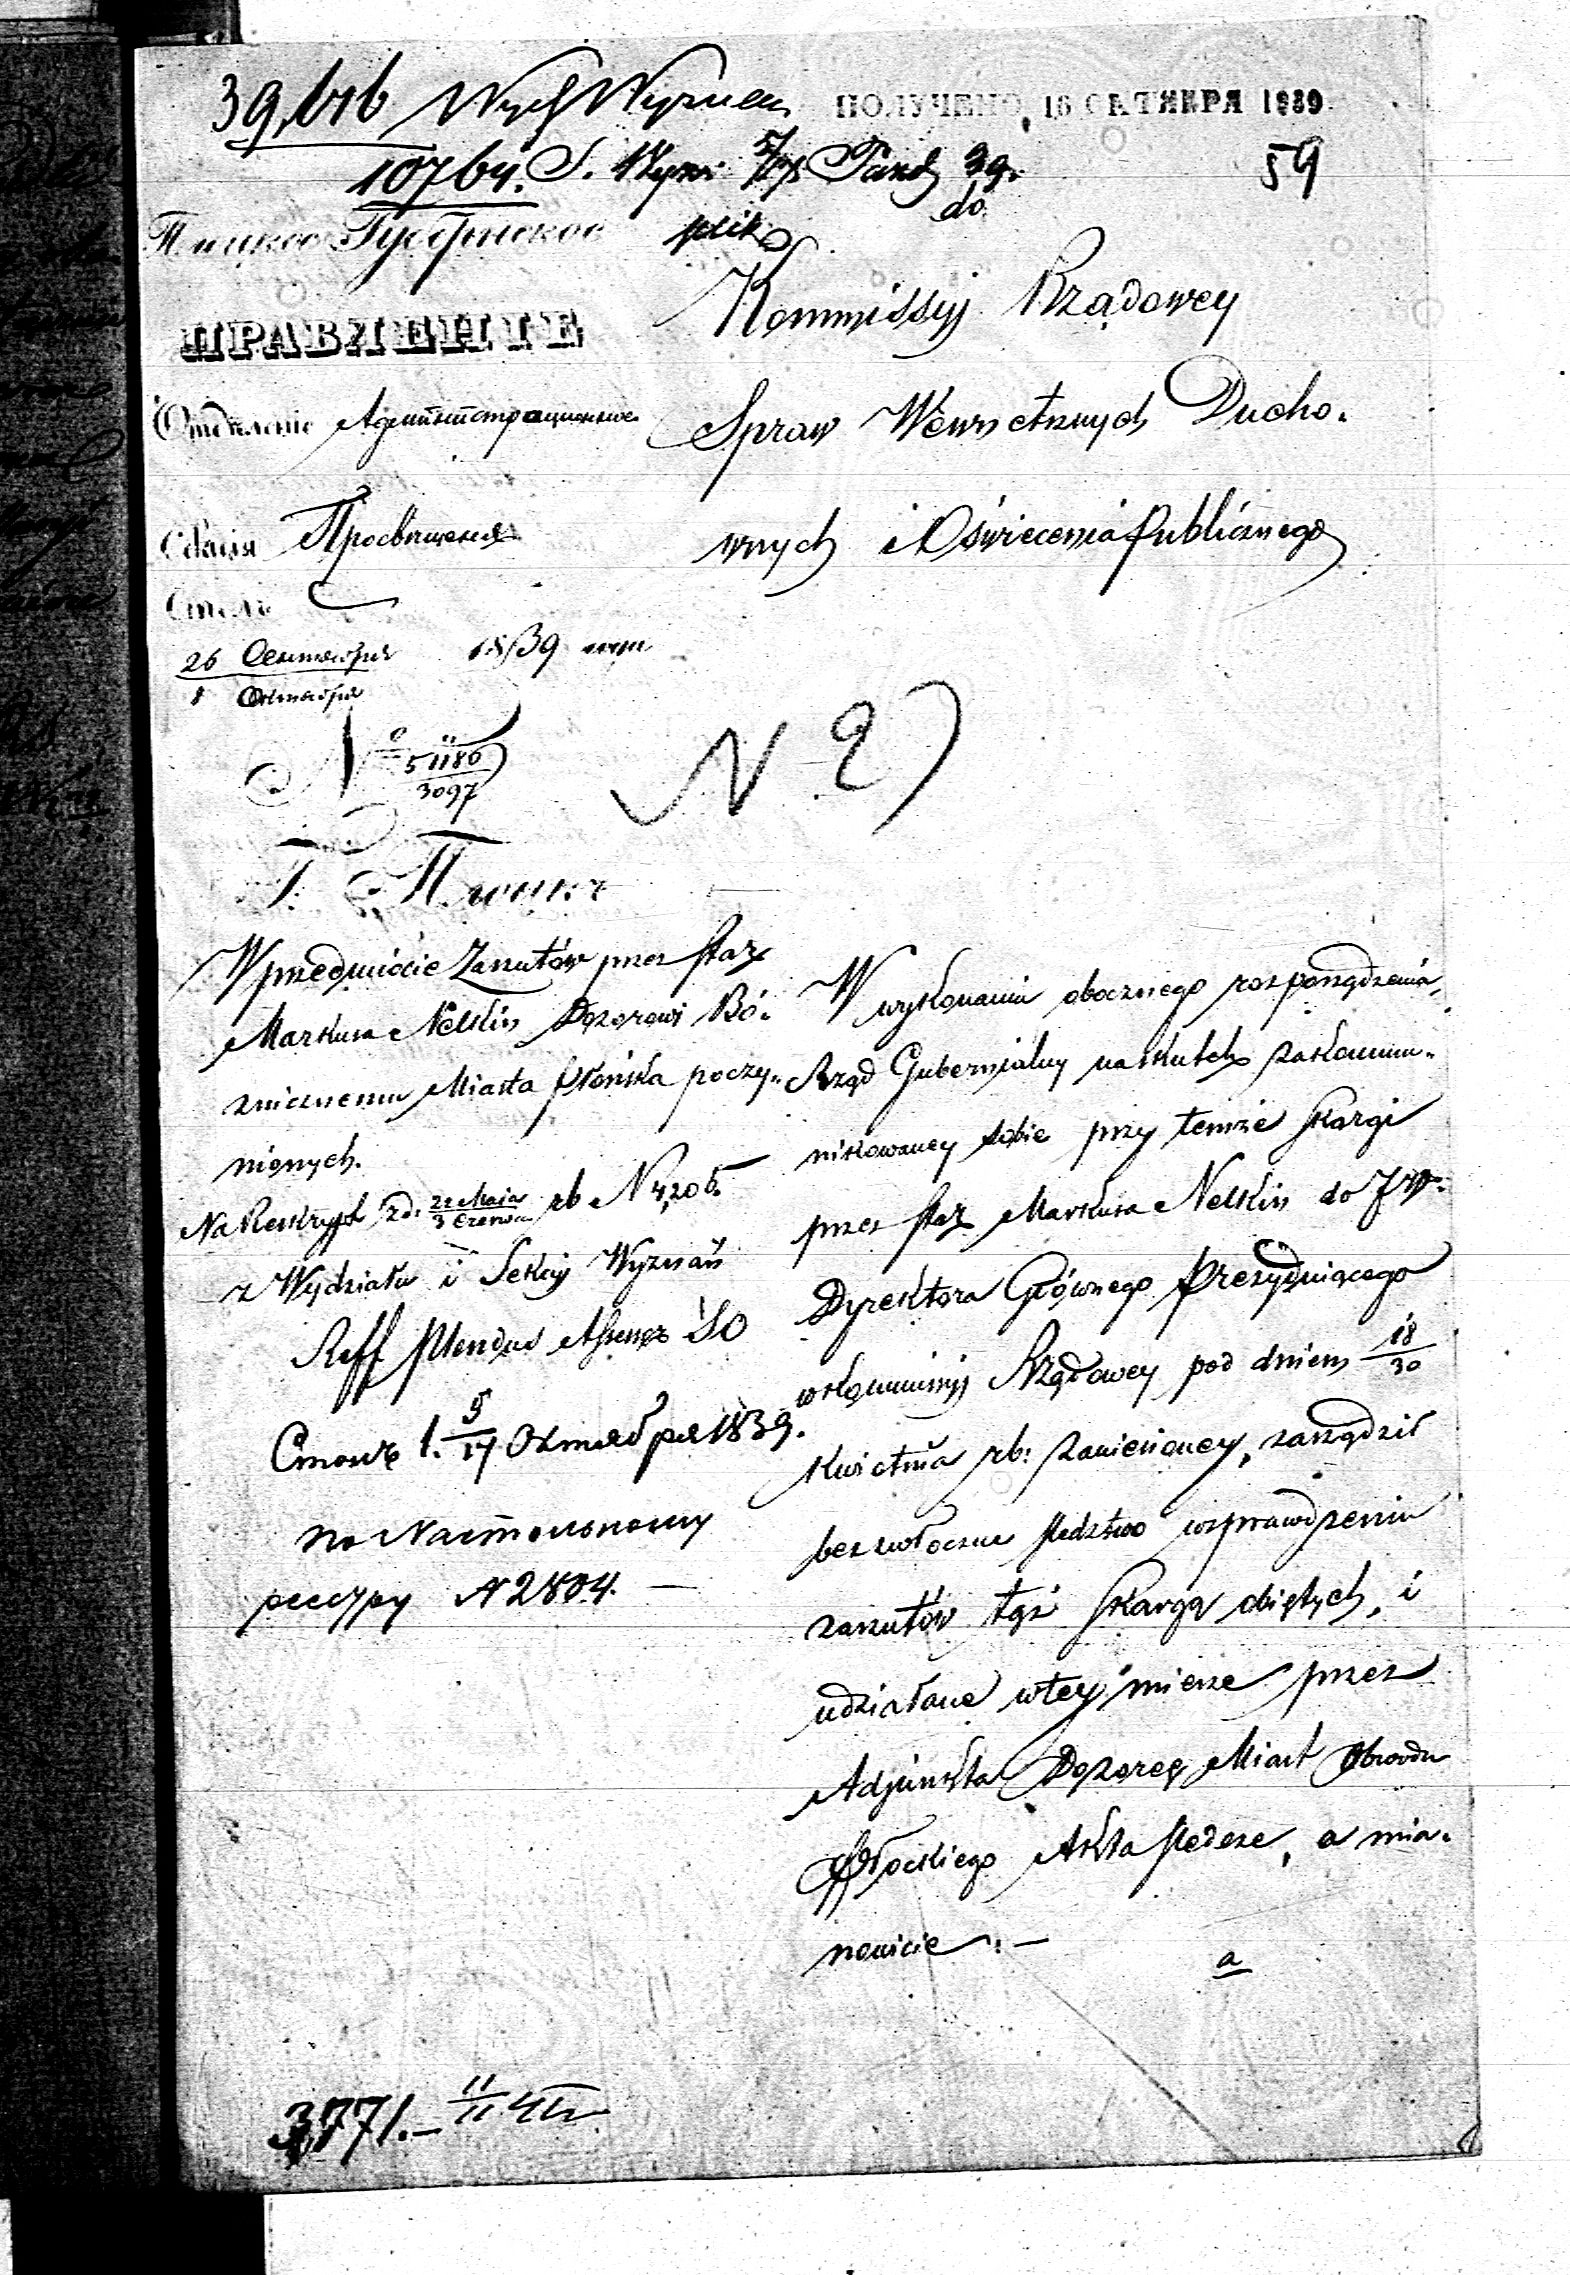 ПОЛУЧЕНО, 16 ОКТЯБРЯ 1839
59
10764.
do
Губернское
Kommissyj Rządowey
ПРАВЛЕНІЕ
Отдѣленіе
Spraw WewnętrznychDucho-
Секція Просвѣщенія
wnych i Oświecenia Publicznego
Столъ
26 Сентября 1839 года
8 Октября
N 51186
3097
N 2)
Г. Плоцкъ
W przedmiocie Zarzutów przez Star
Markusa Nelkin Dozorowi Bó-
zniczemu Miasta Płońska poczy-
nionych.
Na Reskrypt z d. 22 Maia
3 Czerwca rb N 4,206.
z Wydziału i Sekcyj Wyznań
5
17 Октября 1839.
по Настольному
реестру N 2804.
W wykonaniu obocznego rozporządzenia,
Rząd Gubernialny na skutek zakommu-
nikowaney sobie przy temże skargi
przez Star Markusa Nelkin do JW.
Dyrektora Głównego Prezydującego
w Kommissyj Rządowey pod dniem 18
30
Kwietnia rb: zaniesioney, zarządził
bezzwłoczne śledztwo w sprawdzeniu
zarzutów tąż skargą obiętych, i
udziałane w tey mierze przez
Adjunkta Dozorcę Miast Obwodu
Płockiego Akta śledcze, a mia-
nowicie: —
a
3,771.—